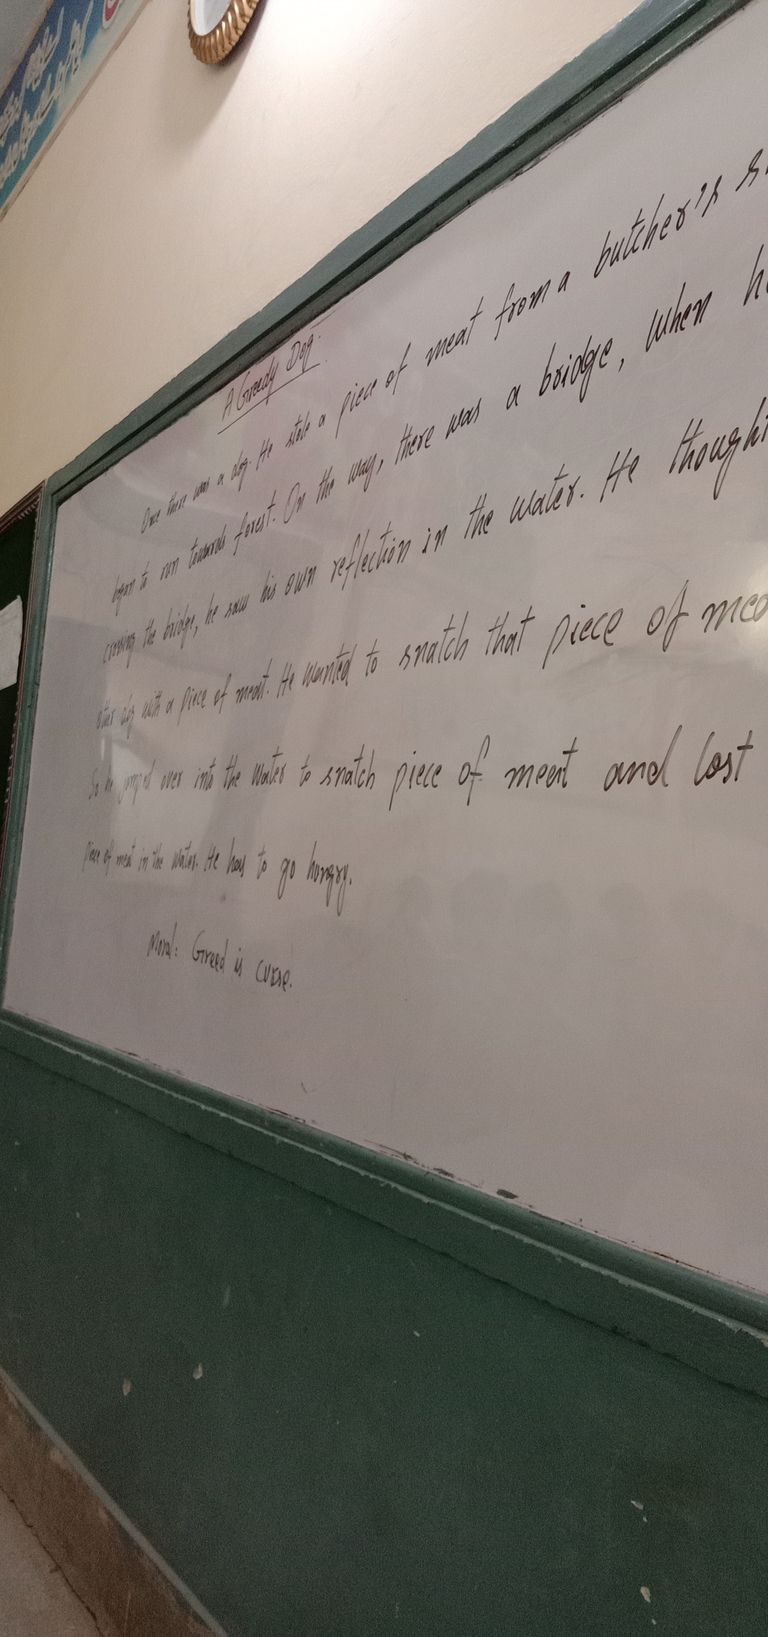 A Greedy Dog
Once there was a dog. He stole a piece of meat from a butcher's
began to run towards forest. On the way, there was a bridge, When
crossing the bridge, he saw his own reflection in the water. He thought
other dog with a piece of meat. He wanted to snatch that piece of
So he jumped over into the water to snatch piece of meat and lost
piece of meat in the water. He has to go hungry.
Moral: Greed is curse.